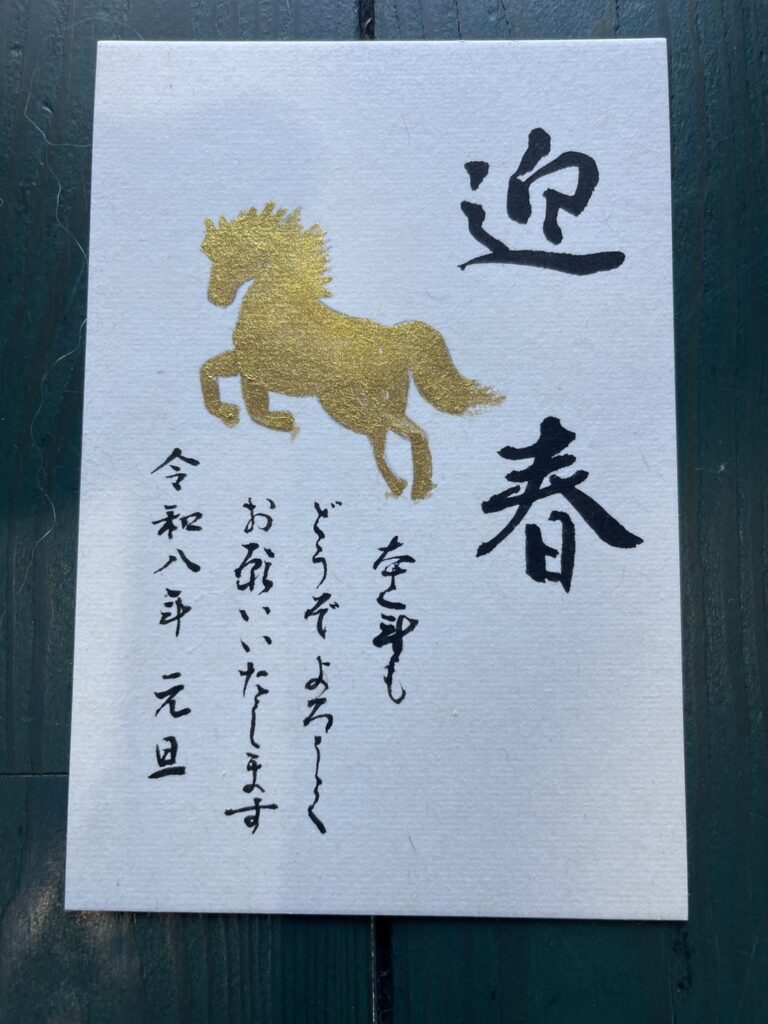 迎春
本年も
どうぞよろしく
お願いいたします
令和八年 元旦